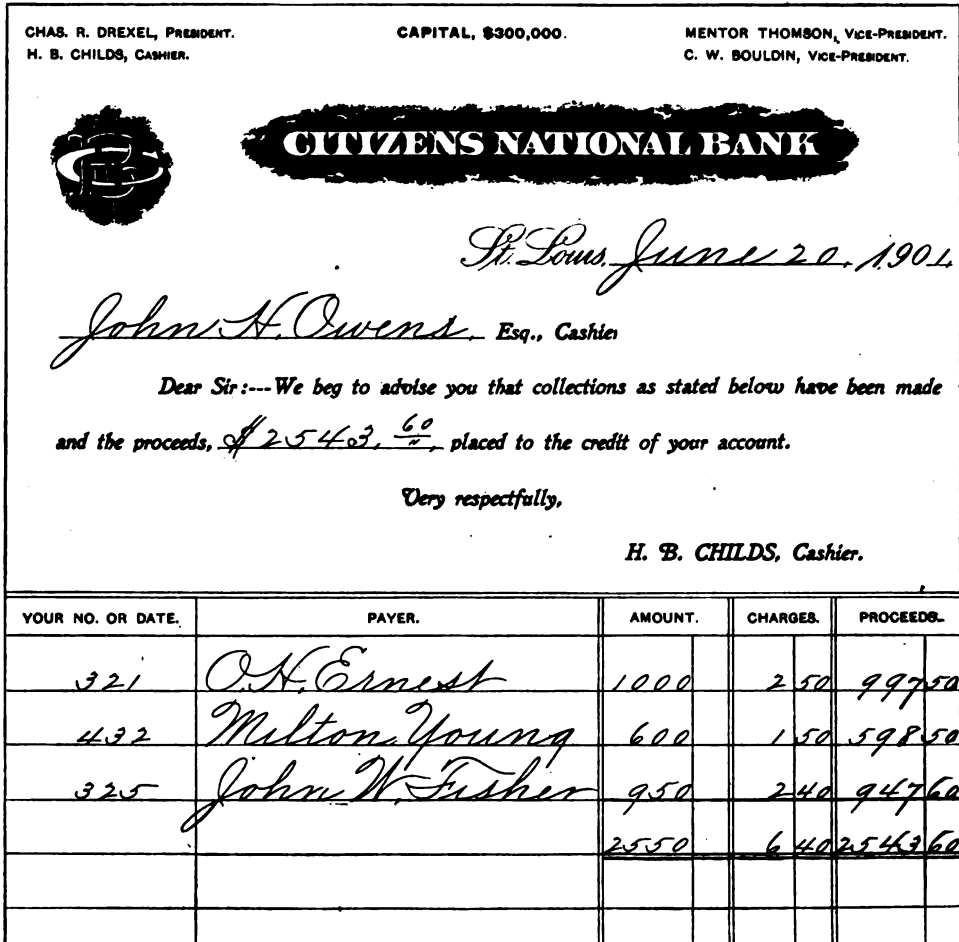 CHAS. R. DREXEL, PRESIDENT. CAPITAL, $300,000. MENTOR THOMSON, VICE-PRESIDENT.
H. B. CHILDS, CASHIER. C. W. BOULDIN, VICE-PRESIDENT.
CITIZENS NATIONAL BANK
St. Louis, June 20, 1901
John H. Owens, Esq., Cashier
Dear Sir:---We beg to advise you that collections as stated below have been made
and the proceeds, $2543. 60/", placed to the credit of your account.
Very respectfully,
H. B. CHILDS, Cashier.
YOUR NO. OR DATE. PAYER. AMOUNT. CHARGES. PROCEEDS.
321 O.H. Ernest 1000 2 50 997 50
432 Milton Young 600 1 50 598 50
325 John W. Fisher 950 2 40 947 60
2550 6 40 2543 60